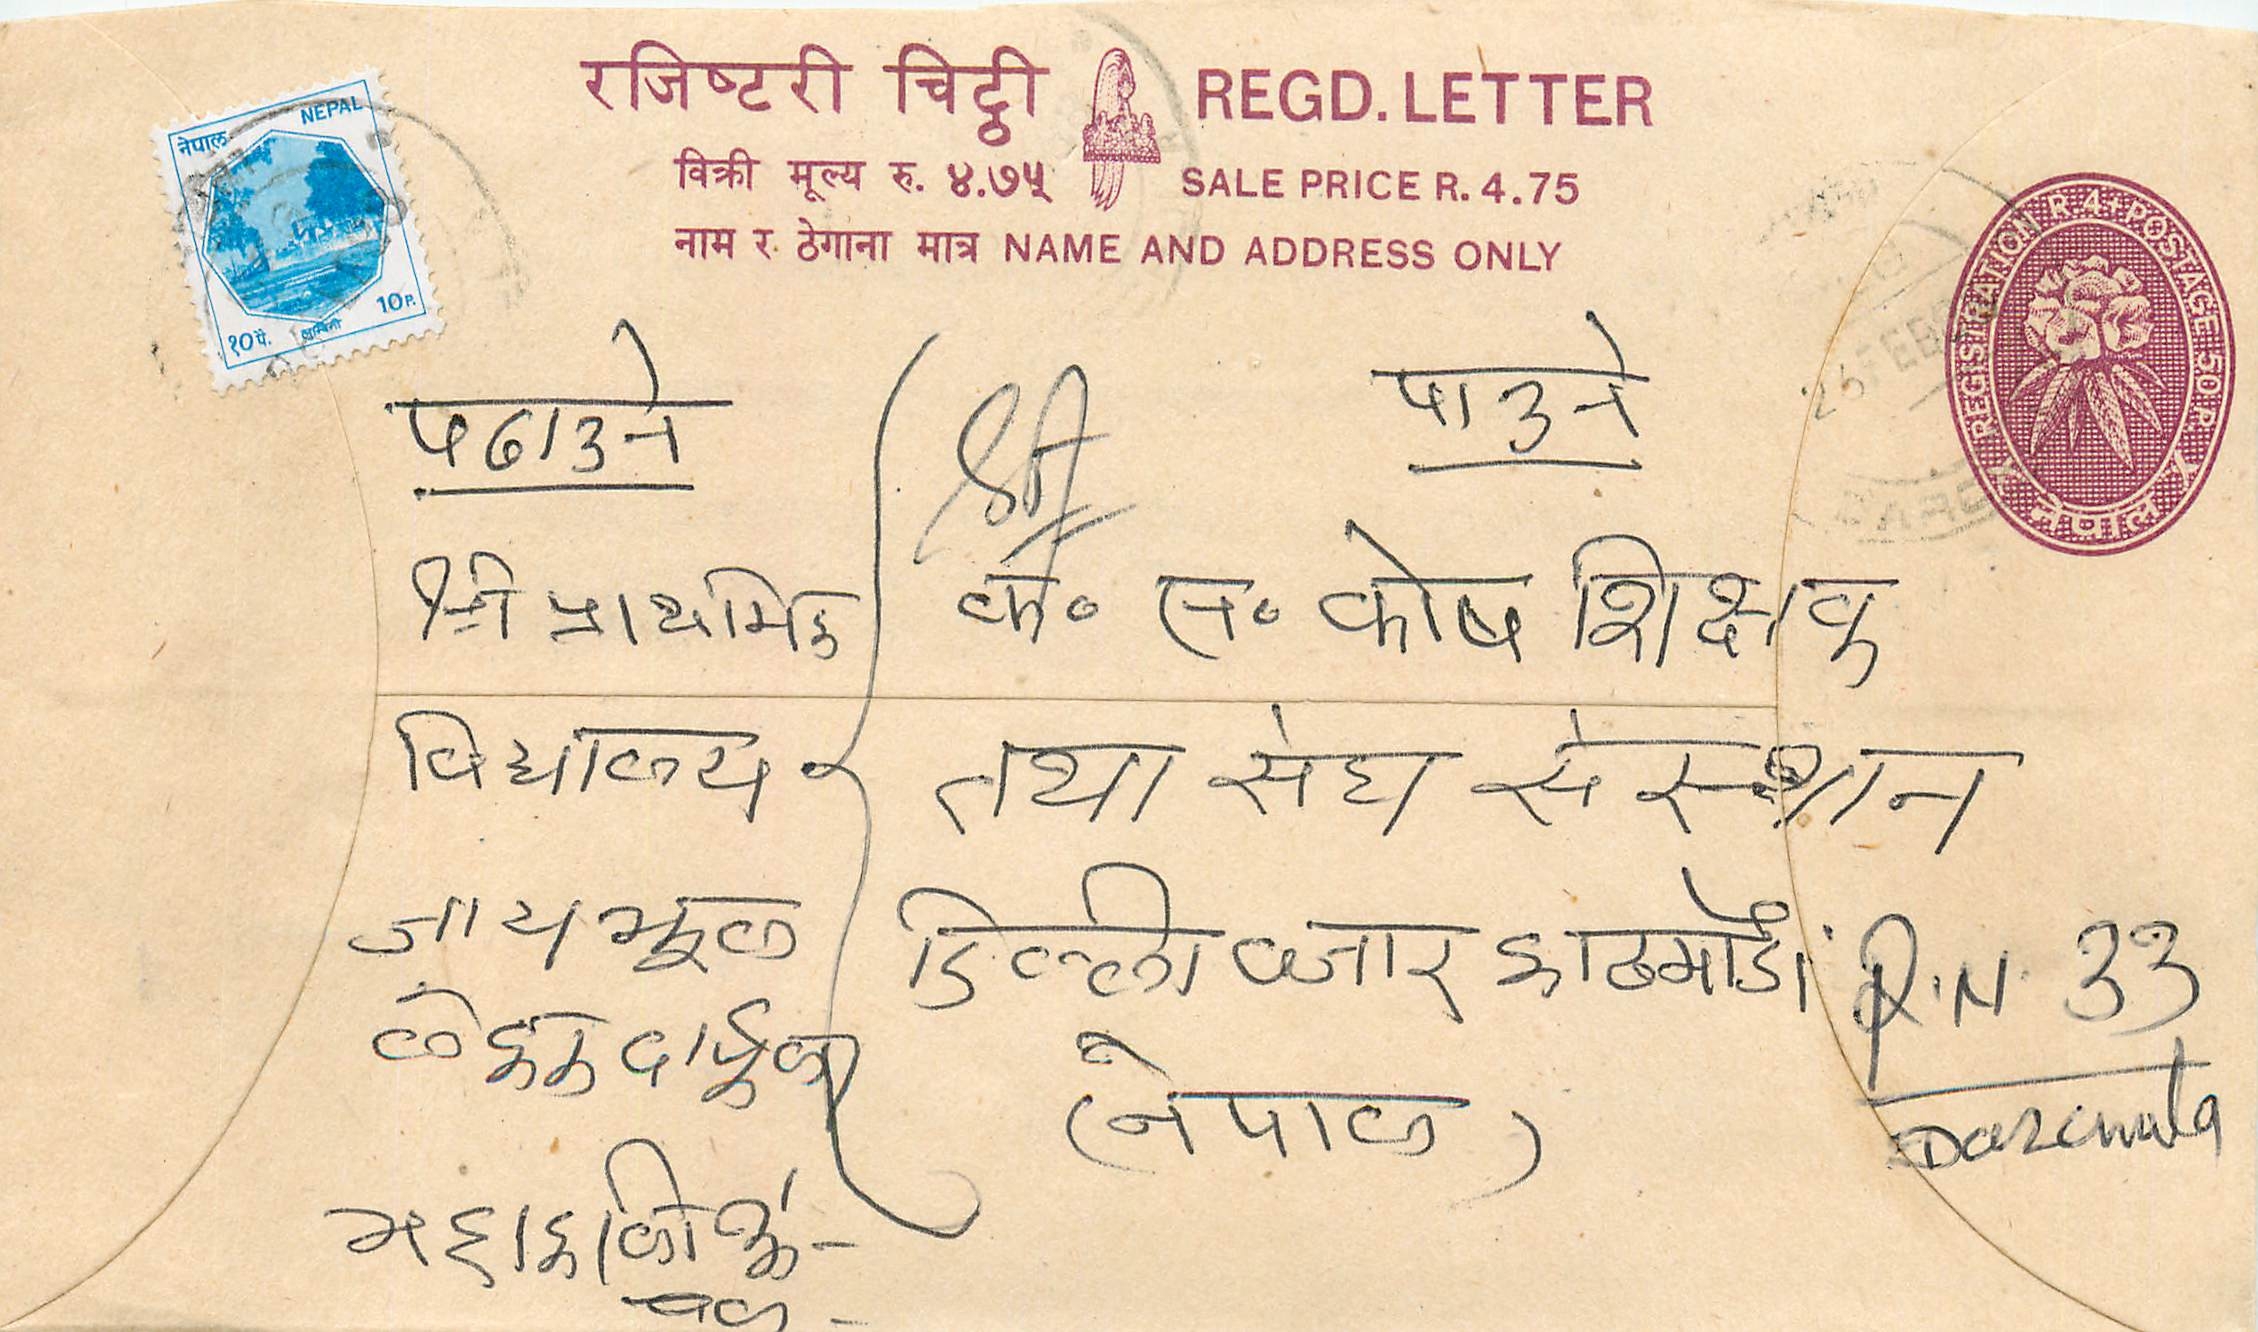 रजिष्टरी चिट्ठी REGD. LETTER
विक्री मूल्य रु. ४.७५ SALE PRICE R. 4.75
नाम र ठेगाना मात्र NAME AND ADDRESS ONLY
नेपाल NEPAL
१० पै. लुम्बिनी 10 P.
REGISTRATION R. 4 + POSTAGE 50 P.
नेपाल
पठाउने
श्री प्राथमिक
विद्यालय
महाकाली अं-
चल -
पाउने
श्री
क॰ स॰ कोष शिक्षक
तथा संघ संस्थान
डिल्ली बजार काठमाडौं
(नेपाल)
R.N. 33
Darchula